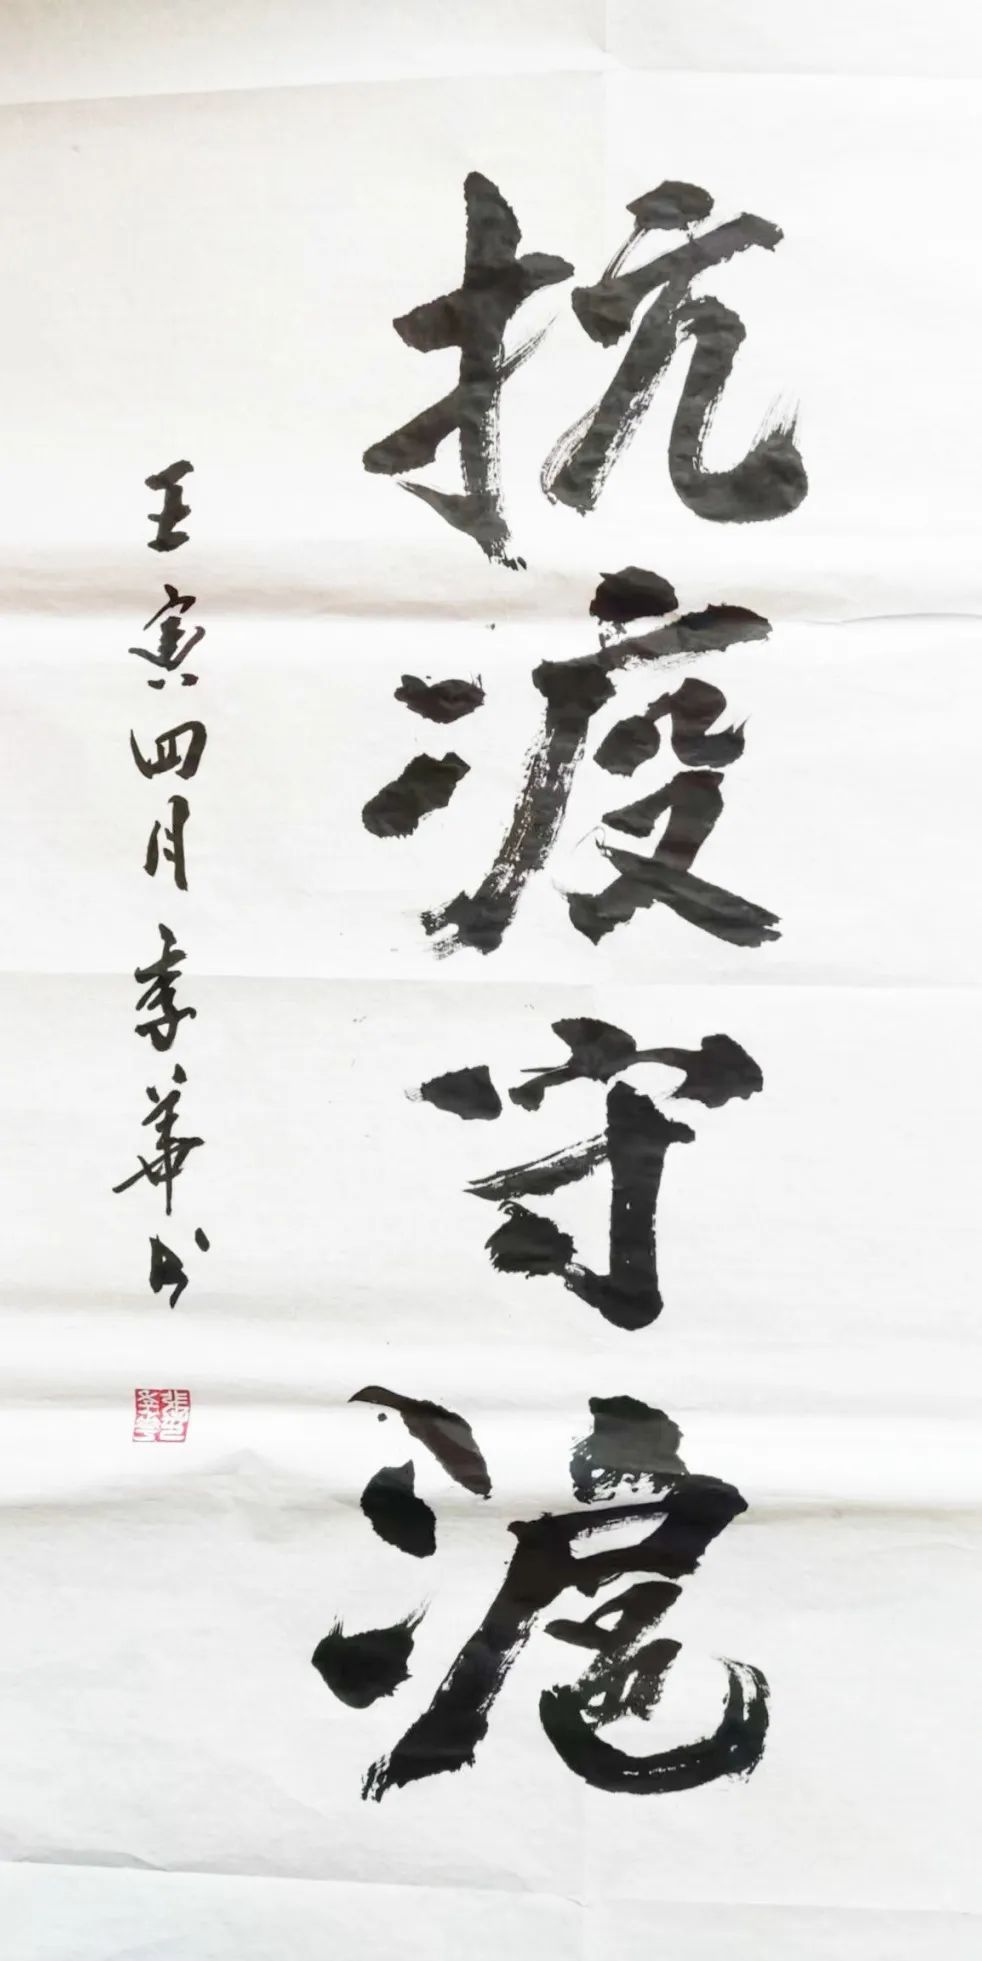 抗疫守沪
壬寅四月季华书